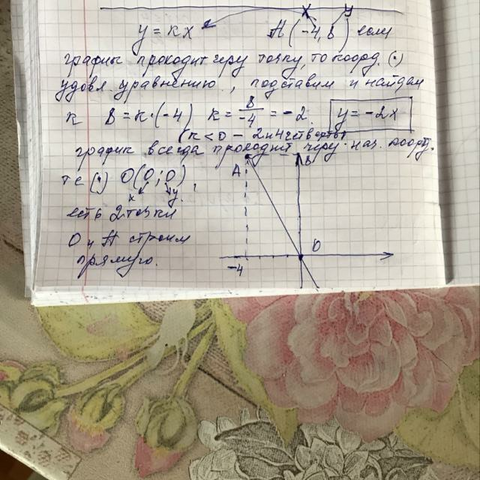 x y
y = kx A(-4, 8) если
график проходит через точку, то коорд. (•)
удовл. уравнению, подставим и найдём
k 8 = k·(-4) k = 8/-4 = -2. y = -2x
(k < 0 – 2 и 4 четверти
график всегда проходит через нач. коорд.
те (•) O(0; 0),
x y
есть 2 точки
O и A строим
прямую.
A 8
-4 0